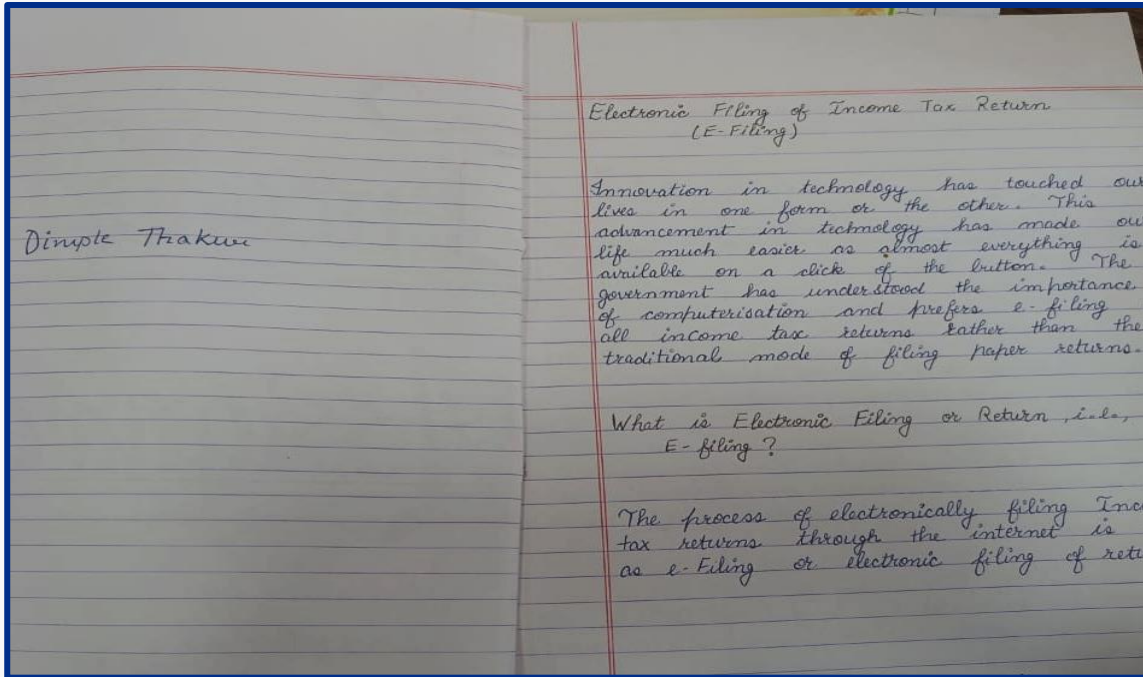 Dimple Thakur
Electronic Filing of Income Tax Return
(E-Filing)
Innovation in technology has touched our
lives in one form or the other. This
advancement in technology has made ou
life much easier as almost everything is
available on a click of the button. The
government has understood the importance
of computerisation and prefers e-filing
all income tax returns rather than the
traditional mode of filing paper returns.
What is Electronic Filing or Return, i.e.,
E-filing?
The process of electronically filing Inc
tax returns through the internet is
as e-Filing or electronic filing of retu